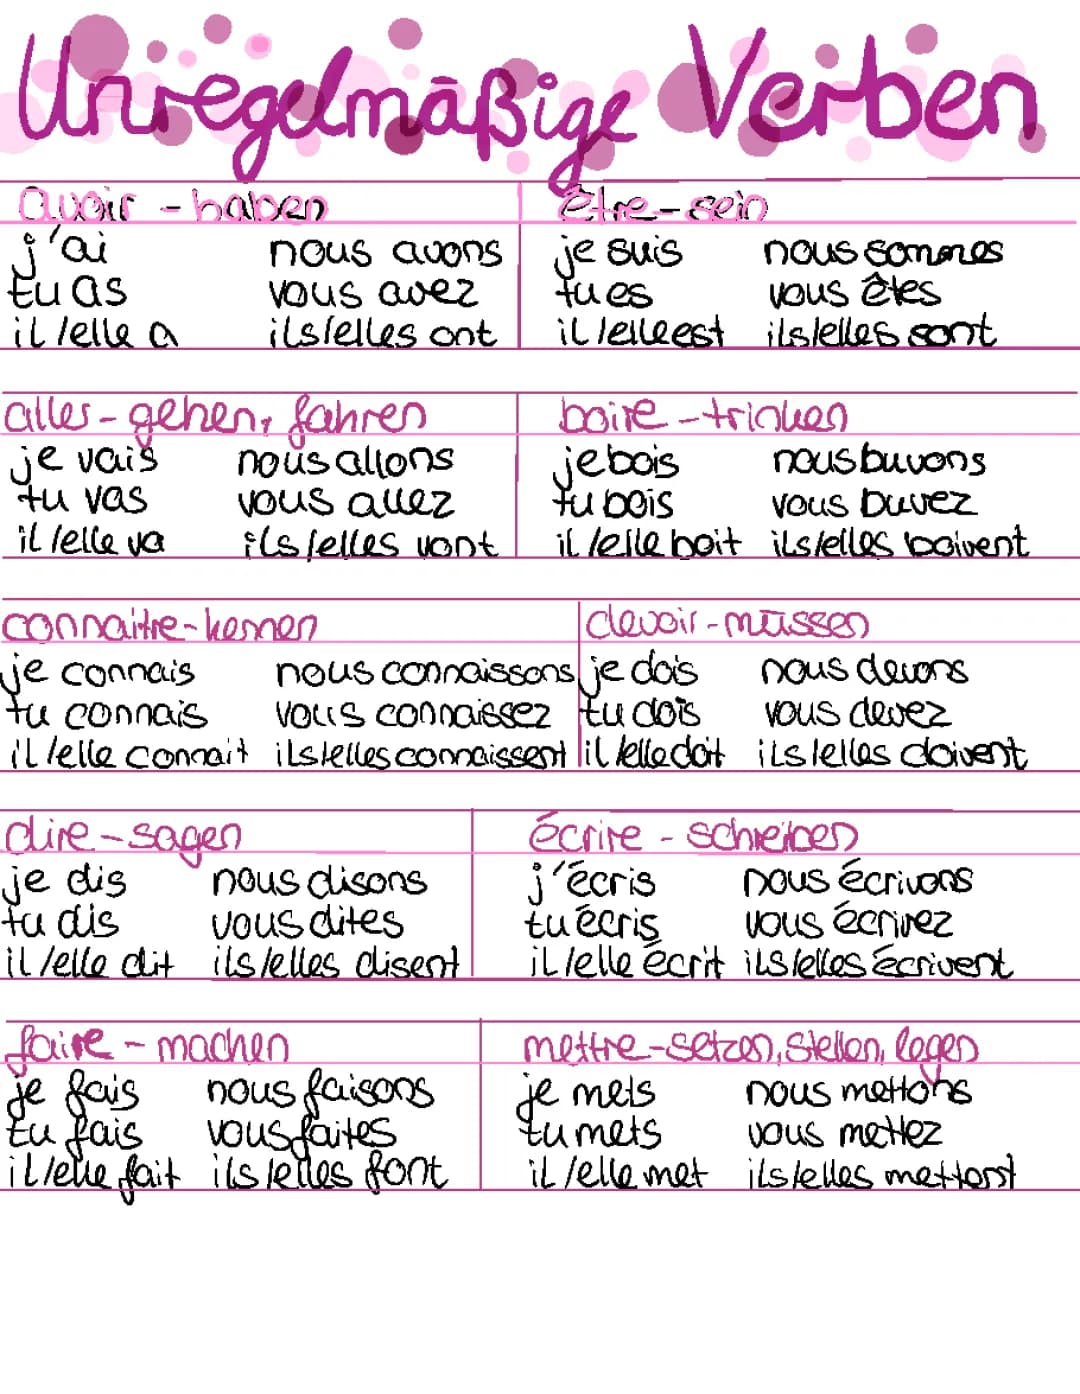 Unregelmäßige Verben
avoir - haben
j'ai nous avons
tu as vous avez
il/elle a ils/elles ont
être - sein
je suis nous sommes
tu es vous êtes
il/elle est ils/elles sont
aller - gehen, fahren
je vais nous allons
tu vas vous allez
il/elle va ils/elles vont
boire - trinken
je bois nous buvons
tu bois vous buvez
il/elle boit ils/elles boivent
connaitre - kennen
je connais nous connaissons
tu connais vous connaissez
il/elle connait ils/elles connaissent
devoir - müssen
je dois nous devons
tu dois vous devez
il/elle doit ils/elles doivent
dire - sagen
je dis nous disons
tu dis vous dites
il/elle dit ils/elles disent
écrire - schreiben
j'écris nous écrivons
tu écris vous écrivez
il/elle écrit ils/elles écrivent
faire - machen
je fais nous faisons
tu fais vous faites
il/elle fait ils/elles font
mettre - setzen, stellen, legen
je mets nous mettons
tu mets vous mettez
il/elle met ils/elles mettont